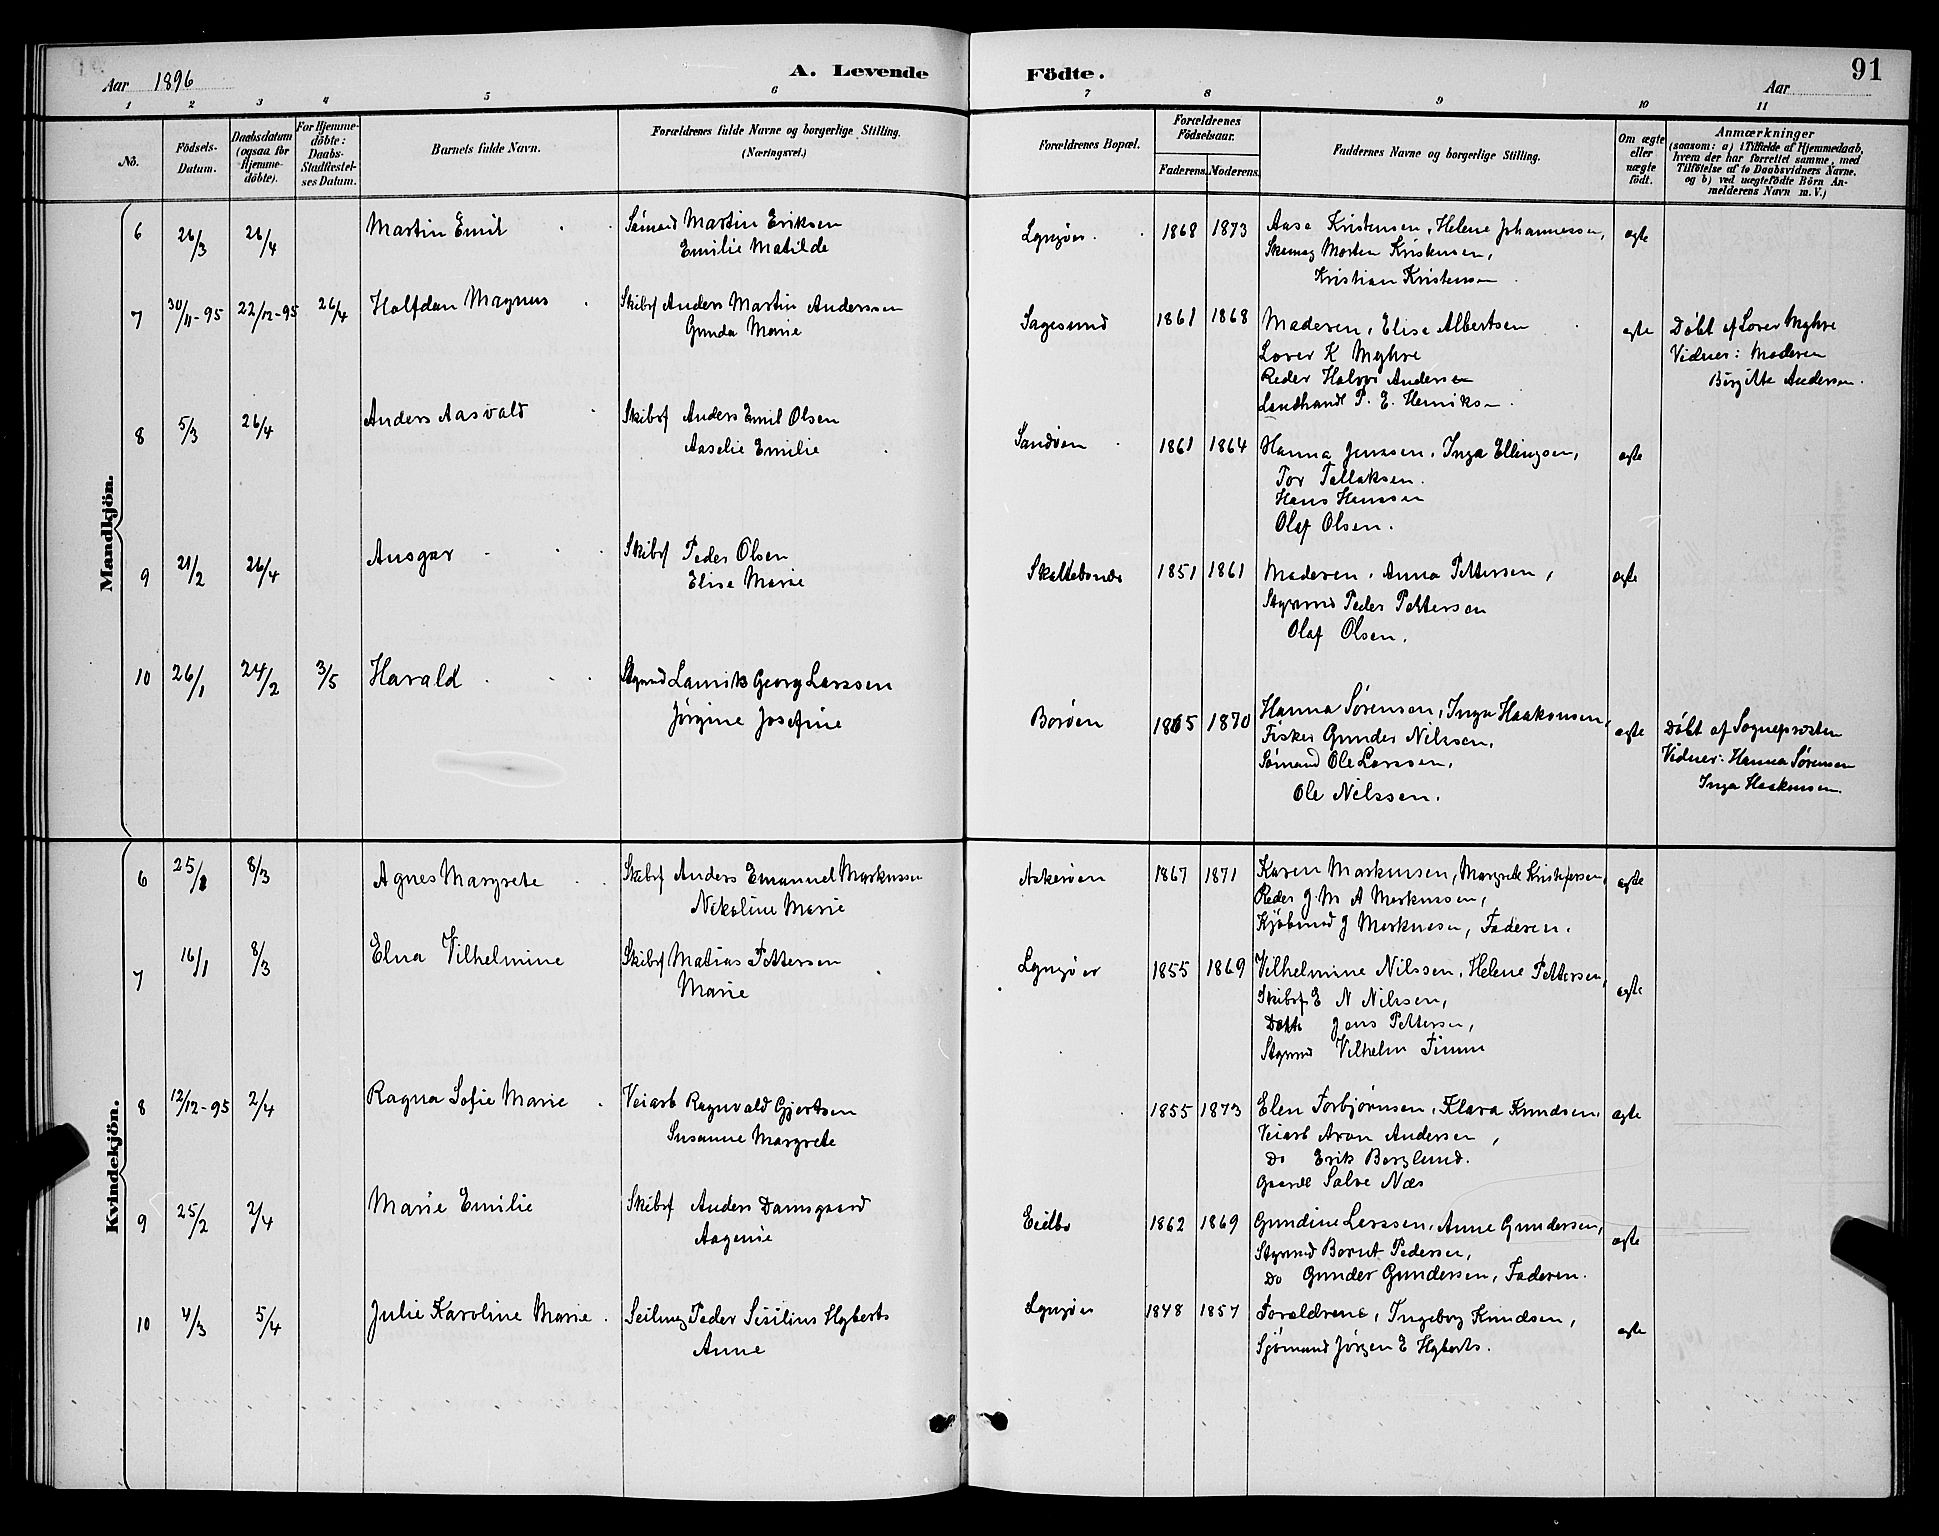 Aar 1896
A. Levende Födte.
Aar
91
1 2 3 4 5 6 7 8 9 10 11
Nô.
Födsels-Datum.
Daabsdatum (ogsaa for Hjemme-döbte).
For Hjemme-döbte: Daabs-Stadfæstel-ses Datum.
Barnets fulde Navn.
Forældrenes fulde Navne og borgerlige Stilling. (Næringsvei.)
Forældrenes Bopæl.
Forældrenes Födselsaar.
Faderens. Moderens.
Faddernes Navne og borgerlige Stilling.
Om ægte eller uægte födt.
Anmærkninger
(saasom: a) i Tilfælde af Hjemmedaab,
hvem der har forrettet samme, med
Tilföielse af to Daabsvidners Navne.
og b) ved uægtefödte Börn An-
melderens Navn m.V.)
Mandkjön.
6 26/3 26/4 Martin Emil Sömand Martin Eriksen Lyngøer 1868 1873 Aase Kristensen, Helene Johannessen, ægte
Emilie Matilde Morten Kristensen,
Kristian Kristensen
7 30/11-95 22/12-95 26/4 Halfdan Magnus Skibsf Anders Martin Anderssen Sagesund 1861 1868 Moderen, Elise Albertsen ægte Döbt af Lærer Myhre
Gunda Marie Lærer K Myhre Vidner: Moderen
Reder Halvor Andersen Birgitte Andersen.
Landhandl P. E. Henriksen
8 5/3 26/4 Anders Aasvald Skibsf Anders Emil Olsen Sandøen 1861 1864 Hanna Jenssen, Inga Ellingsen, ægte
Aaselie Emilie Tor Tallaksen.
Hans Hanssen
Olaf Olsen.
9 21/2 26/4 Ansgar Skibsf Peder Olsen 1851 1861 Moderen, Anna Pettersen, ægte
Elise Marie Styrmd Peder Pettersen
Olaf Olsen.
10 26/1 24/2 3/5 Harald Styrmd Laurits Georg Larssen Borøen 1865 1870 Hanna Sørensen, Inga Haakonsen, ægte Döbt af Sogneprosten
Jørgine Josefine Fisker Gunder Nilssen, Vidner: Hanna Sørensen
Sømand Ole Larssen, Inga Haakonsen.
Ole Nilssen.
Kvindekjön.
6 25/1 8/3 Agnes Margrete Skibsf Anders Emanuel Markussen Askerøen 1867 1871 Karen Markussen, Margrete Kristofersen, ægte
Nikoline Marie Reder J. M A Markussen,
Kjøbmd J Markussen, Faderen.
7 16/1 8/3 Elna Vilhelmine Skibsf Matias Pettersen Lyngøer 1855 1869 Vilhelmine Nilssen, Helene Pettersen, ægte
Marie Skibsf E N Nilssen,
Jens Pettersen,
Styrmd Vilhelm Timm
8 12/12-95 2/4 Ragna Sofie Marie Veiarb Ragnvald Gjertsen 1855 1873 Elen Torbjørnsen, Klara Knudsen, ægte
Susanne Margrete Veiarb Aron Andersen,
Do Erik Berglund.
Gaardl Salve Næs
9 25/2 2/4 Marie Emilie Skibsf Anders Damsgaard 1862 1869 Gundine Larssen, Anne Gundersen, ægte
Aagenie Styrmd Bernt Pedersen,
Do Gunder Gundersen, Faderen.
10 4/3 5/4 Julie Karoline Marie Seilmag Peder Sisilius Hyberts Lyngøer 1848 1857 Forældrene, Ingeborg Knudsen, ægte
Anne Sjömand Jörgen E Hyberts.